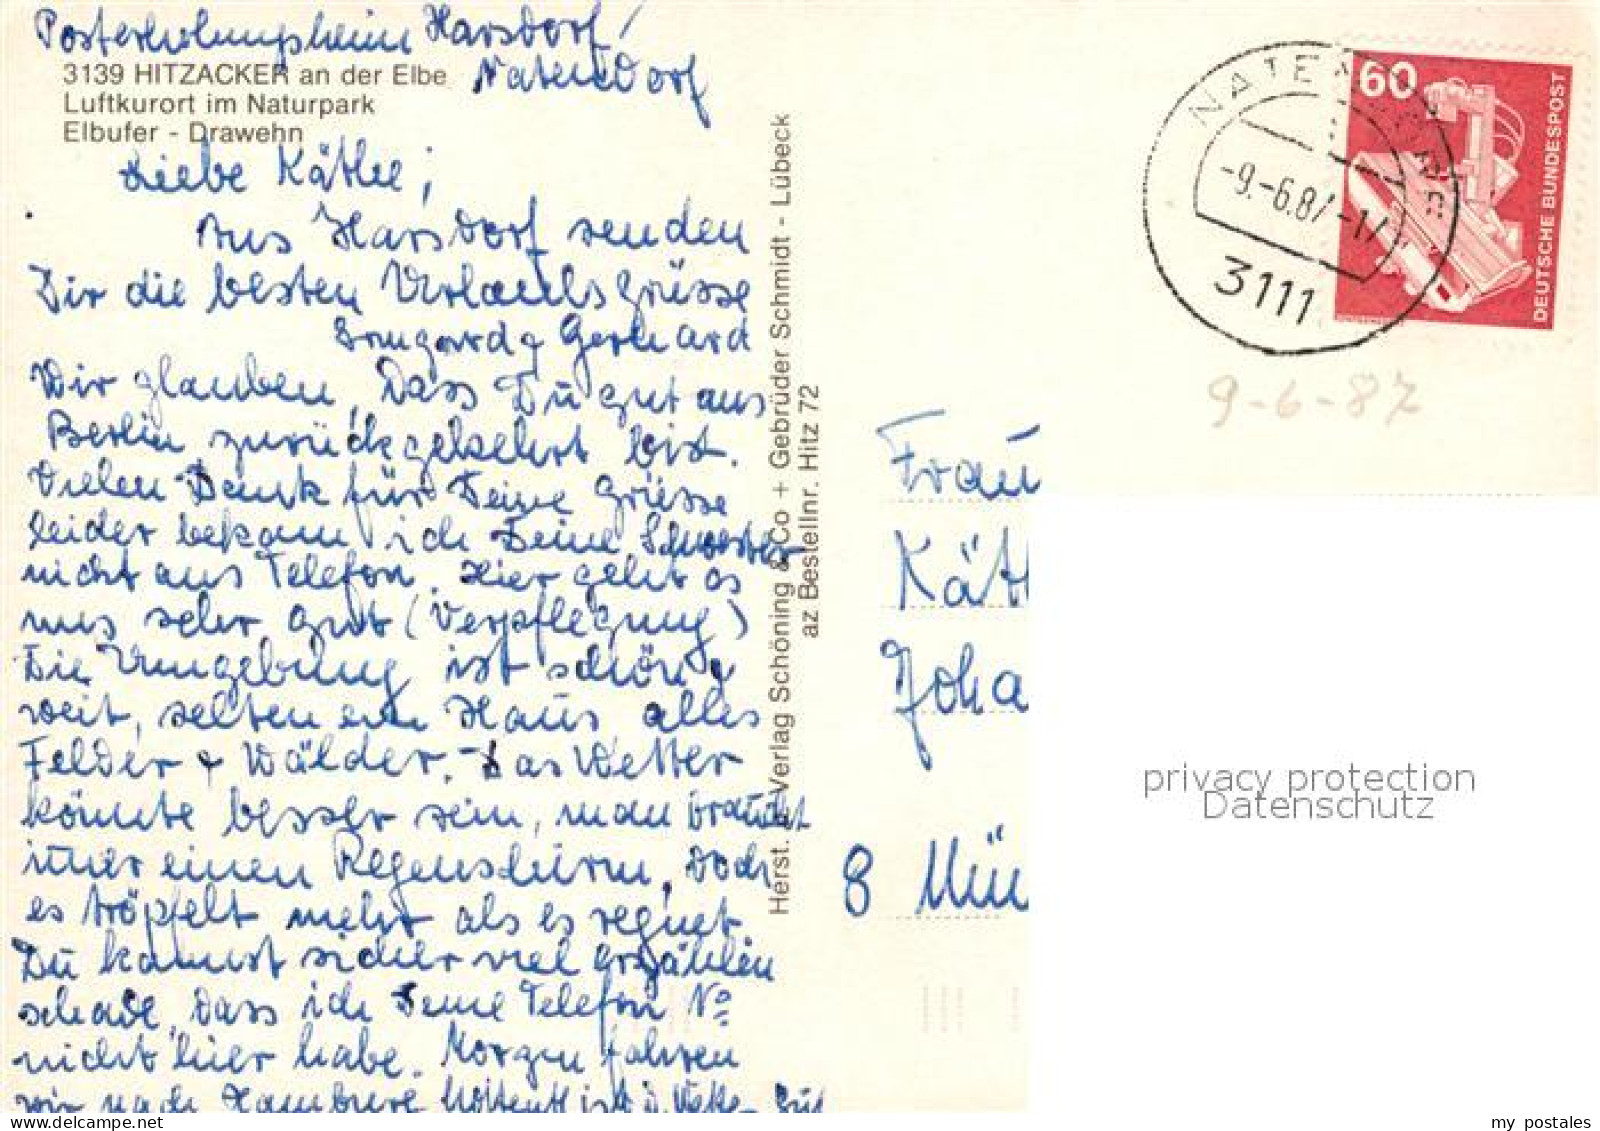 Posterholungsheim Harsdorf/
Natendorf
3139 HITZACKER an der Elbe
Luftkurort im Naturpark
Elbufer - Drawehn
Liebe Käthe;
Aus Harsdorf senden
Dir die besten Urlaubsgrüsse
Irmgard & Gerhard
Wir glauben, dass Du gut aus
Berlin zurückgekehrt bist.
Vielen Dank für Deine Grüsse
leider bekam ich Deine Schwester
nicht ans Telefon. Hier geht es
uns sehr gut (Verpflegung)
Die Umgebung ist schön &
weit, selten ein Haus alles
Felder & Wälder. - Das Wetter
könnte besser sein, man braucht
imer einen Regenschirm, doch
es tröpfelt mehr als es regnet
Du kannst sicher viel erzählen
schade, dass ich Deine Telefon No
nicht hier habe. Morgen fahren
wir nach Hamburg hoffentl ist d. Wetter gut
Herst. u. Verlag Schöning & Co + Gebrüder Schmidt - Lübeck
az Bestellnr. Hitz 72
60
DEUTSCHE BUNDESPOST
-9.-6.87-17
3111
9-6-87
Frau
Käth
Joha
8 Mün
privacy protection
Datenschutz
my postales